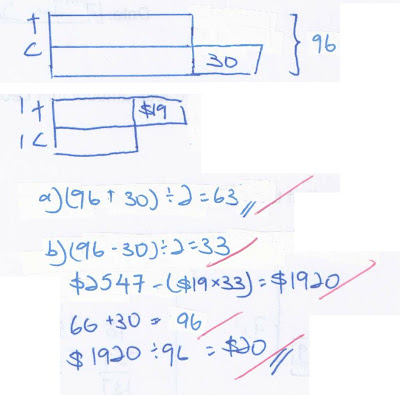 T
C
30
96
1T
$19
1C
a) (96 + 30) ÷ 2 = 63
b) (96 - 30) ÷ 2 = 33
$2547 - ($19 × 33) = $1920
66 + 30 = 96
$1920 ÷ 96 = $20